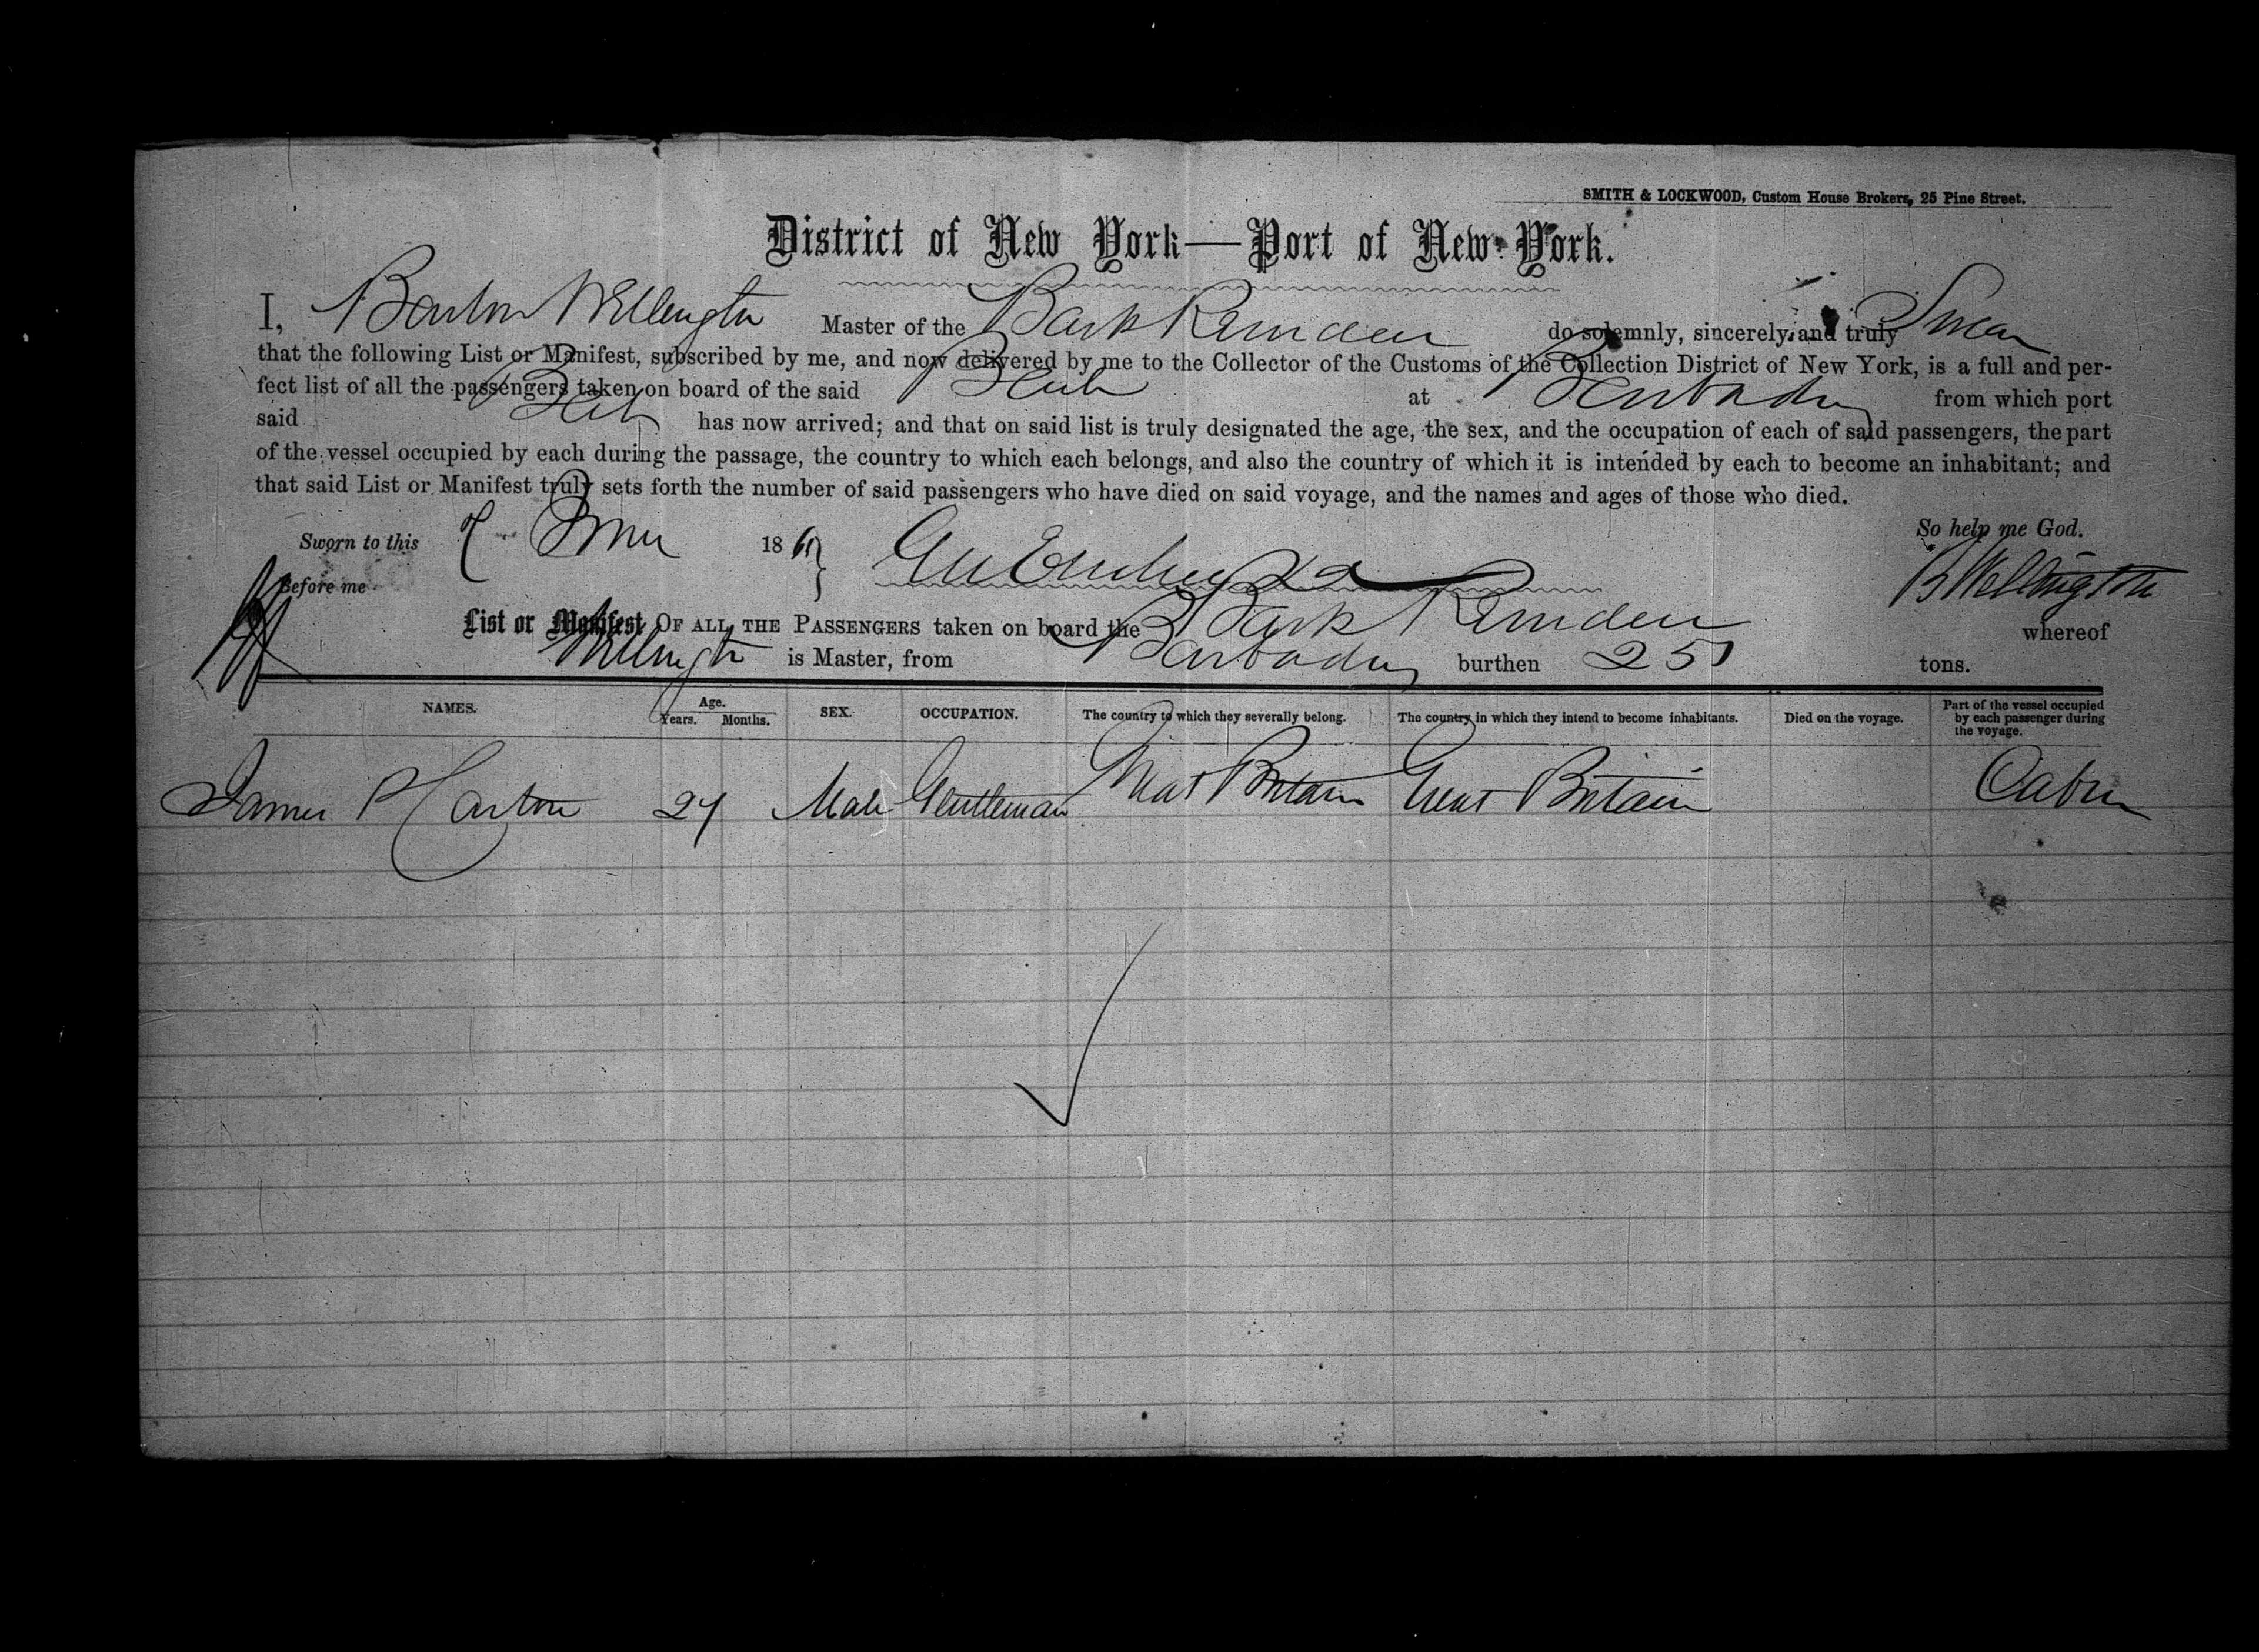 SMITH & LOCKWOOD, Custom House Brokers, 25 Pine Street.
District of New York—Port of New York.
I, Wellington Master of the Bark do solemnly, sincerely and truly Swear
that the following List or Manifest, subscribed by me, and now delivered by me to the Collector of the Customs of the Collection District of New York, is a full and per-
fect list of all the passengers taken on board of the said Bark at Barbados from which port
said Bark has now arrived; and that on said list is truly designated the age, the sex, and the occupation of each of said passengers, the part
of the vessel occupied by each during the passage, the country to which each belongs, and also the country of which it is intended by each to become an inhabitant; and
that said List or Manifest truly sets forth the number of said passengers who have died on said voyage, and the names and ages of those who died.
So help me God.
Sworn to this 186
Before me
B Wellington
List or Manifest OF ALL THE PASSENGERS taken on board the Bark whereof
Wellington is Master, from Barbados burthen 251 tons.
NAMES. Age. Years. Months. SEX. OCCUPATION. The country to which they severally belong. The country in which they intend to become inhabitants. Died on the voyage. Part of the vessel occupied by each passenger during the voyage.
James Male Gentleman Great Britain Great Britain Cabin